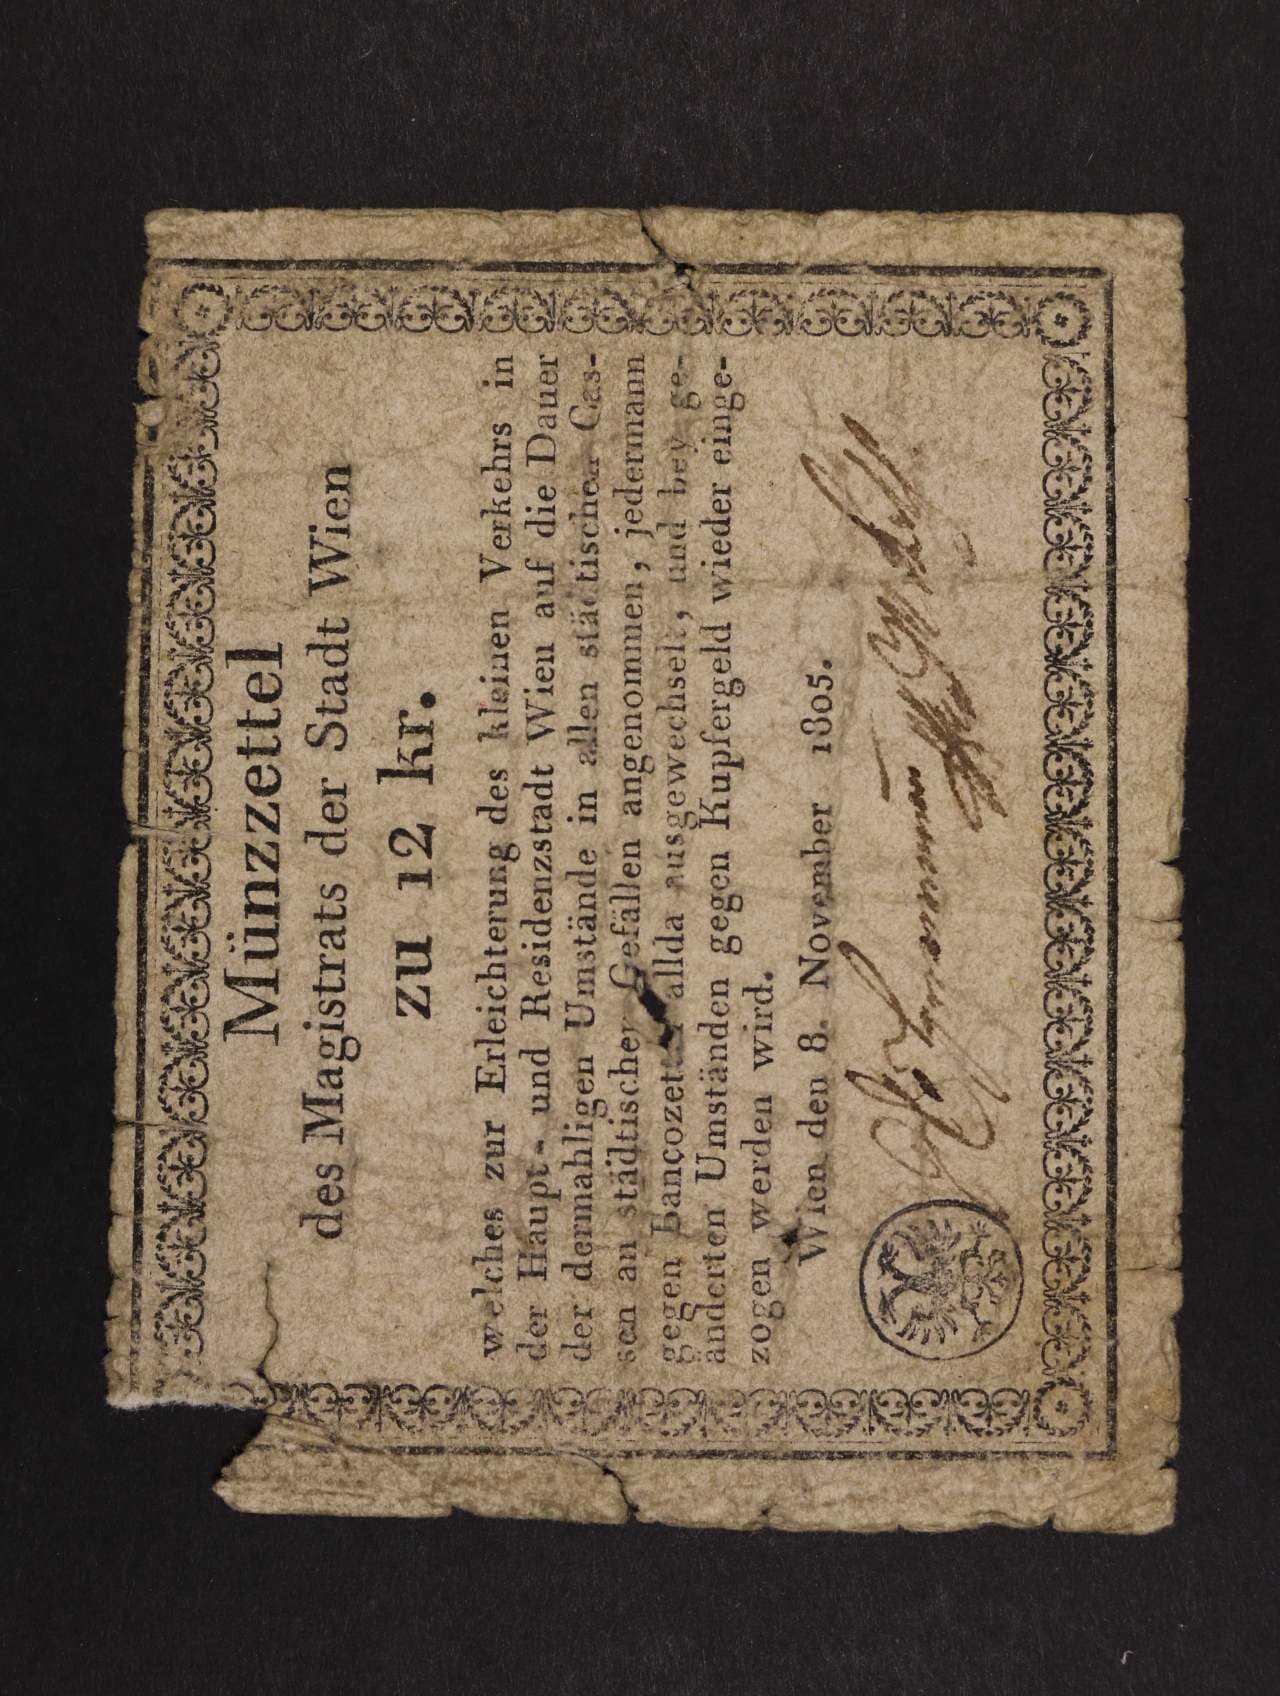 Münzzettel
des Magistrats der Stadt Wien
zu 12 kr.
welches zur Erleichterung des kleinen Verkehrs in
der Haupt- und Residenzstadt Wien auf die Dauer
der dermahligen Umstände in allen städtischen Cas-
sen an städtischen Gefällen angenommen, jedermann
gegen Bancozettel allda ausgewechselt, und bey ge-
änderten Umständen gegen Kupfergeld wieder einge-
zogen werden wird.
Wien den 8. November 1805.